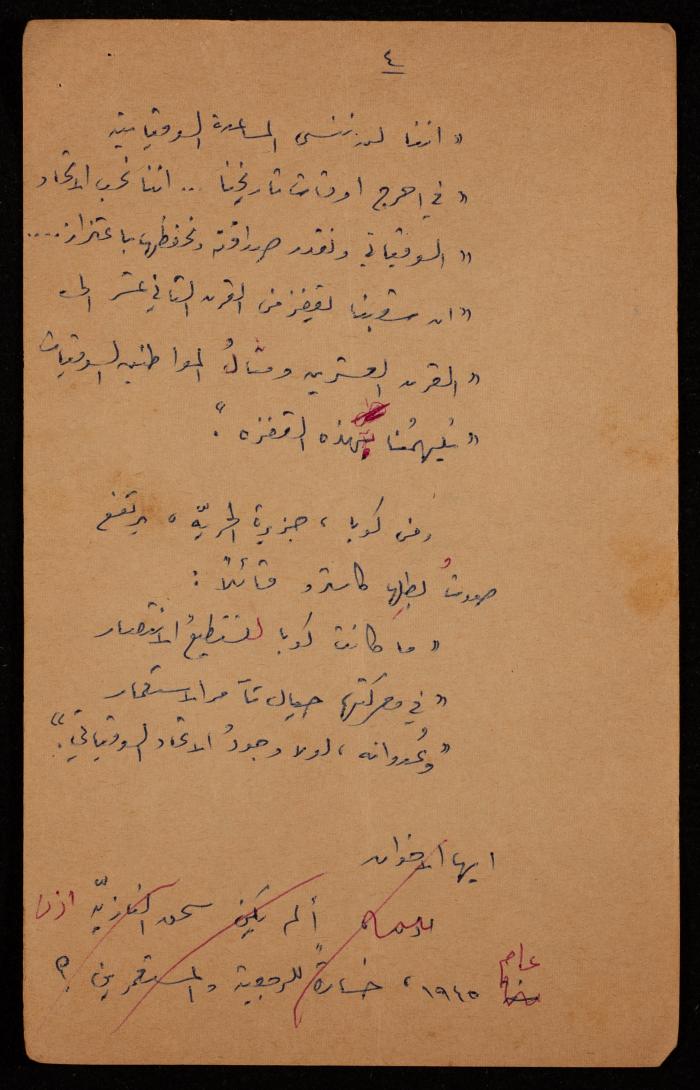 ٤
« اننا لن ننسى المساعدة السوفياتية
« في احرج اوقات تاريخنا ... اننا نحب الاتحاد
« السوفياتي ونقدر صداقته ونحفظها باعتزاز....
« ان شعبنا يقفز من القرن الثاني عشر الى
« القرن العشرين ومثالُ المواطنين السوفيات
« يُلهمُنا بهذه القفزه ».
ومن كوبا ، جزيرة الحريّه ، يرتفع
صوتُ بطلِها كاسترو قائلاً :
« ما كانت كوبا لتستطيعُ الانتصار
« في معركتها حيال تآمر الاستعمار
« وعُدوانه ، لولا وجودُ الاتحاد السوفياتي ».
ايها الاخوان
ألم يكن سحق النازيّه اذن
عام ١٩٤٥ ، خسارةً للرجعية والمستعمرين ؟